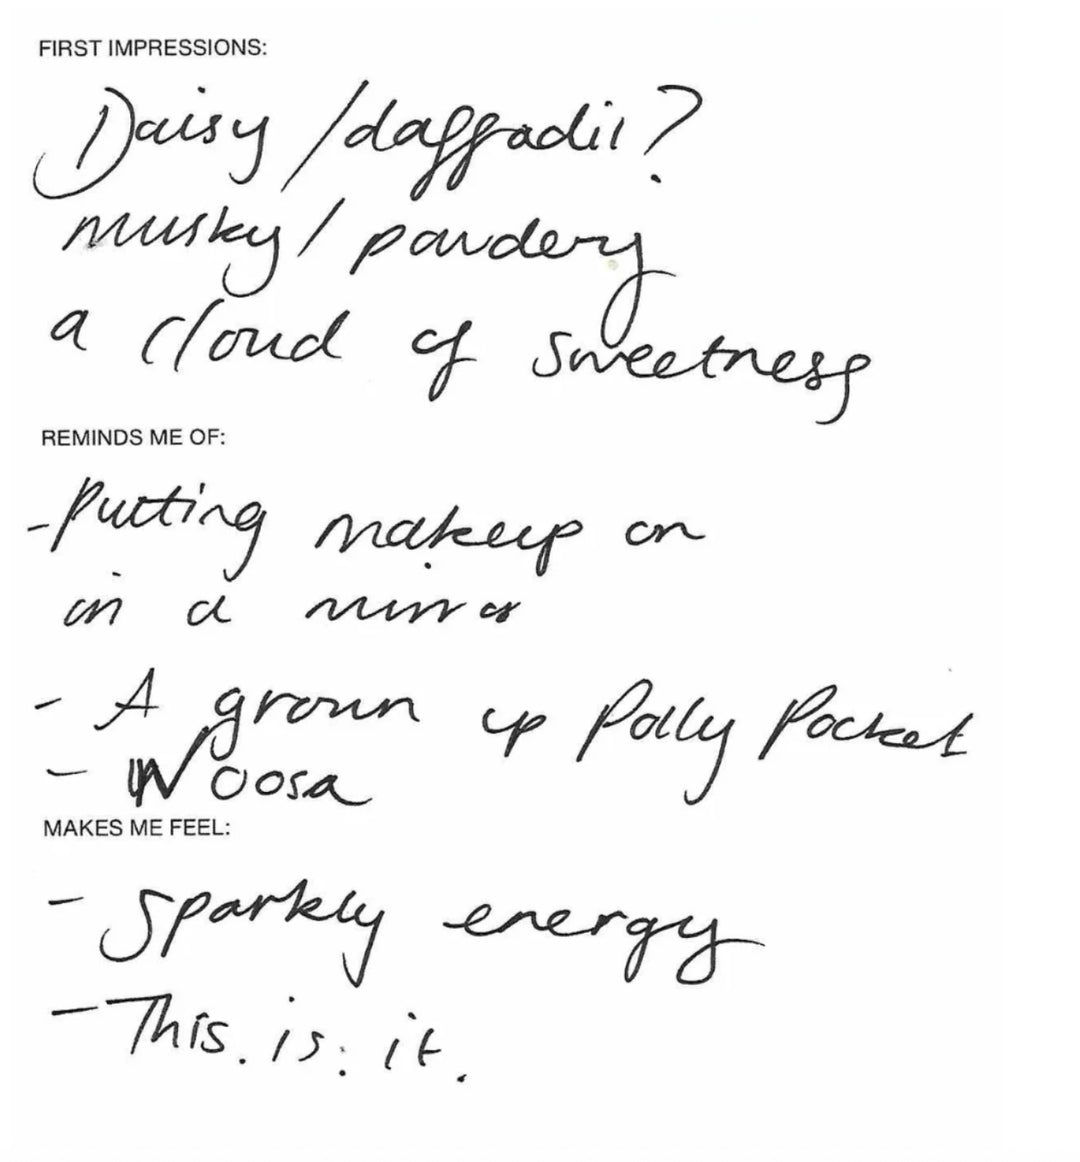 FIRST IMPRESSIONS:
Daisy / daffadil?
musky / powdery
a cloud of sweetness
REMINDS ME OF:
- Putting makeup on
in a mirror
- A grown up Polly Pocket
- Woosa
MAKES ME FEEL:
- Sparkly energy
- This. is. it.